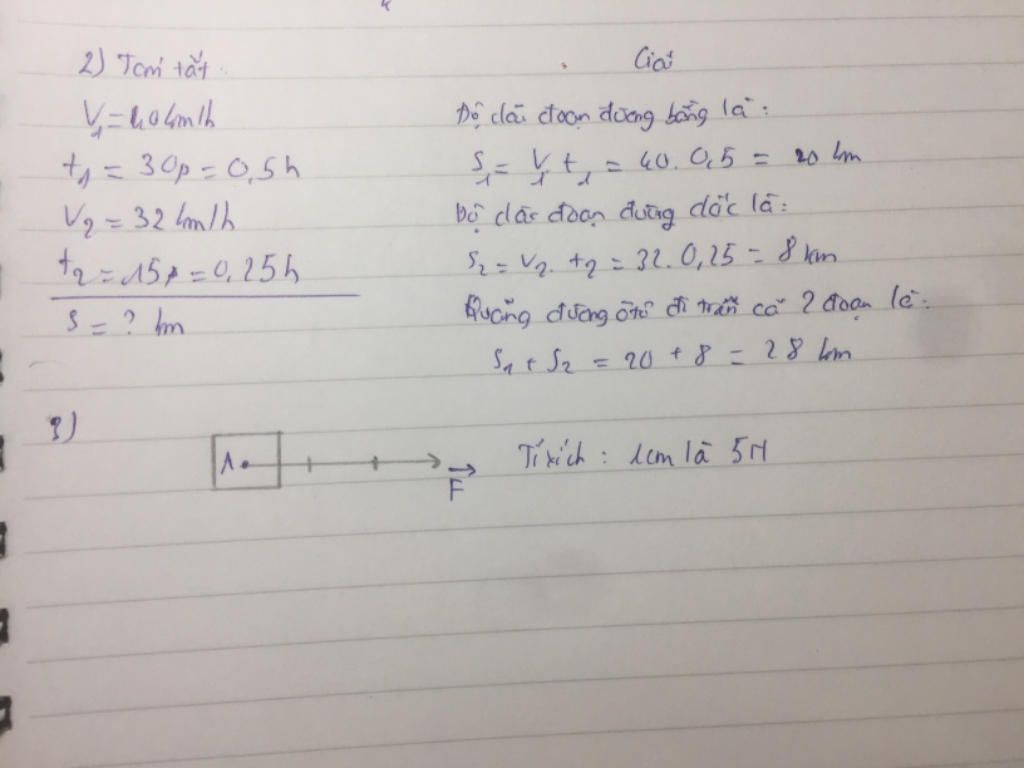 2) Tóm tắt
Giải
V₁ = 40 km/h
t₁ = 30p = 0,5h
V₂ = 32 km/h
t₂ = 15p = 0,25h
S = ? km
Độ dài đoạn đường bằng là:
S₁ = V₁ t₁ = 40. 0,5 = 20 km
Độ dài đoạn đường dốc là:
S₂ = V₂. t₂ = 32. 0,25 = 8 km
Quãng đường ôtô đi trên cả 2 đoạn là:
S₁ + S₂ = 20 + 8 = 28 km
3)
A
F
Tỉ xích: 1cm là 5N